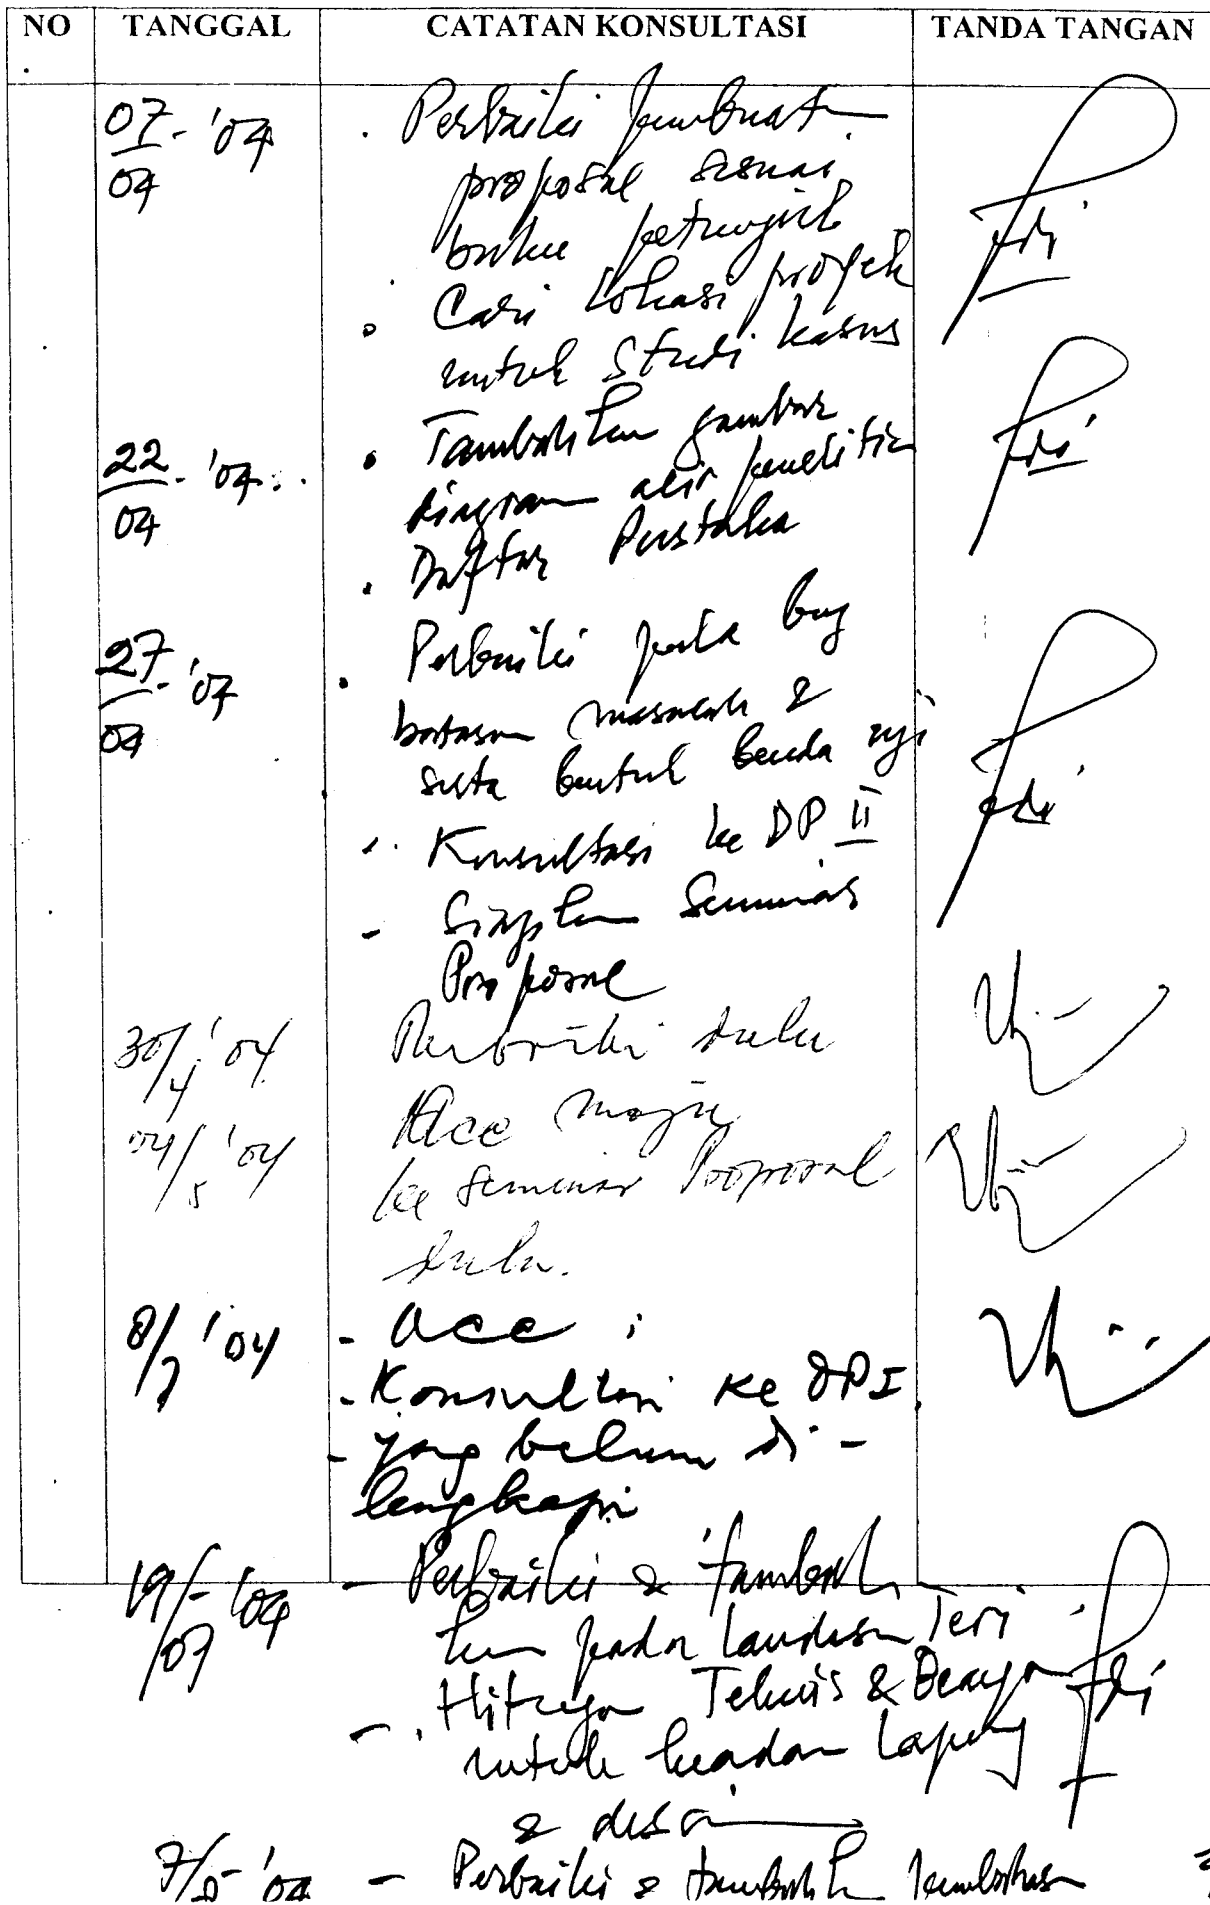 NO TANGGAL CATATAN KONSULTASI TANDA TANGAN
07/04-'04 . Perbaiki pembuatan
proposal sesuai
buku petunjuk
. Cari lokasi proyek
untuk studi kasus
22/04-'04 . Tambahkan gambar
diagram alir penelitian
. Daftar Pustaka
27/04-'04 . Perbaiki pada bag
batasan masalah &
serta bentuk benda uji
. Konsultasi ke DP II
- Siapkan Seminar
Proposal
30/4 '04 Perbaiki dulu
04/5 '04 Acc maju
ke seminar Proposal
dulu.
8/7 '04 - Acc ;
- Konsultasi ke DPI
- yang belum di-
lengkapi
19/07 '04 - Perbaiki & tambah
kan pada Landasan Teori
- Hitungan Teknis & Beaya
untuk keadaan Lapang
& desain
'04 - Perbaiki & tambahkan pembahasan